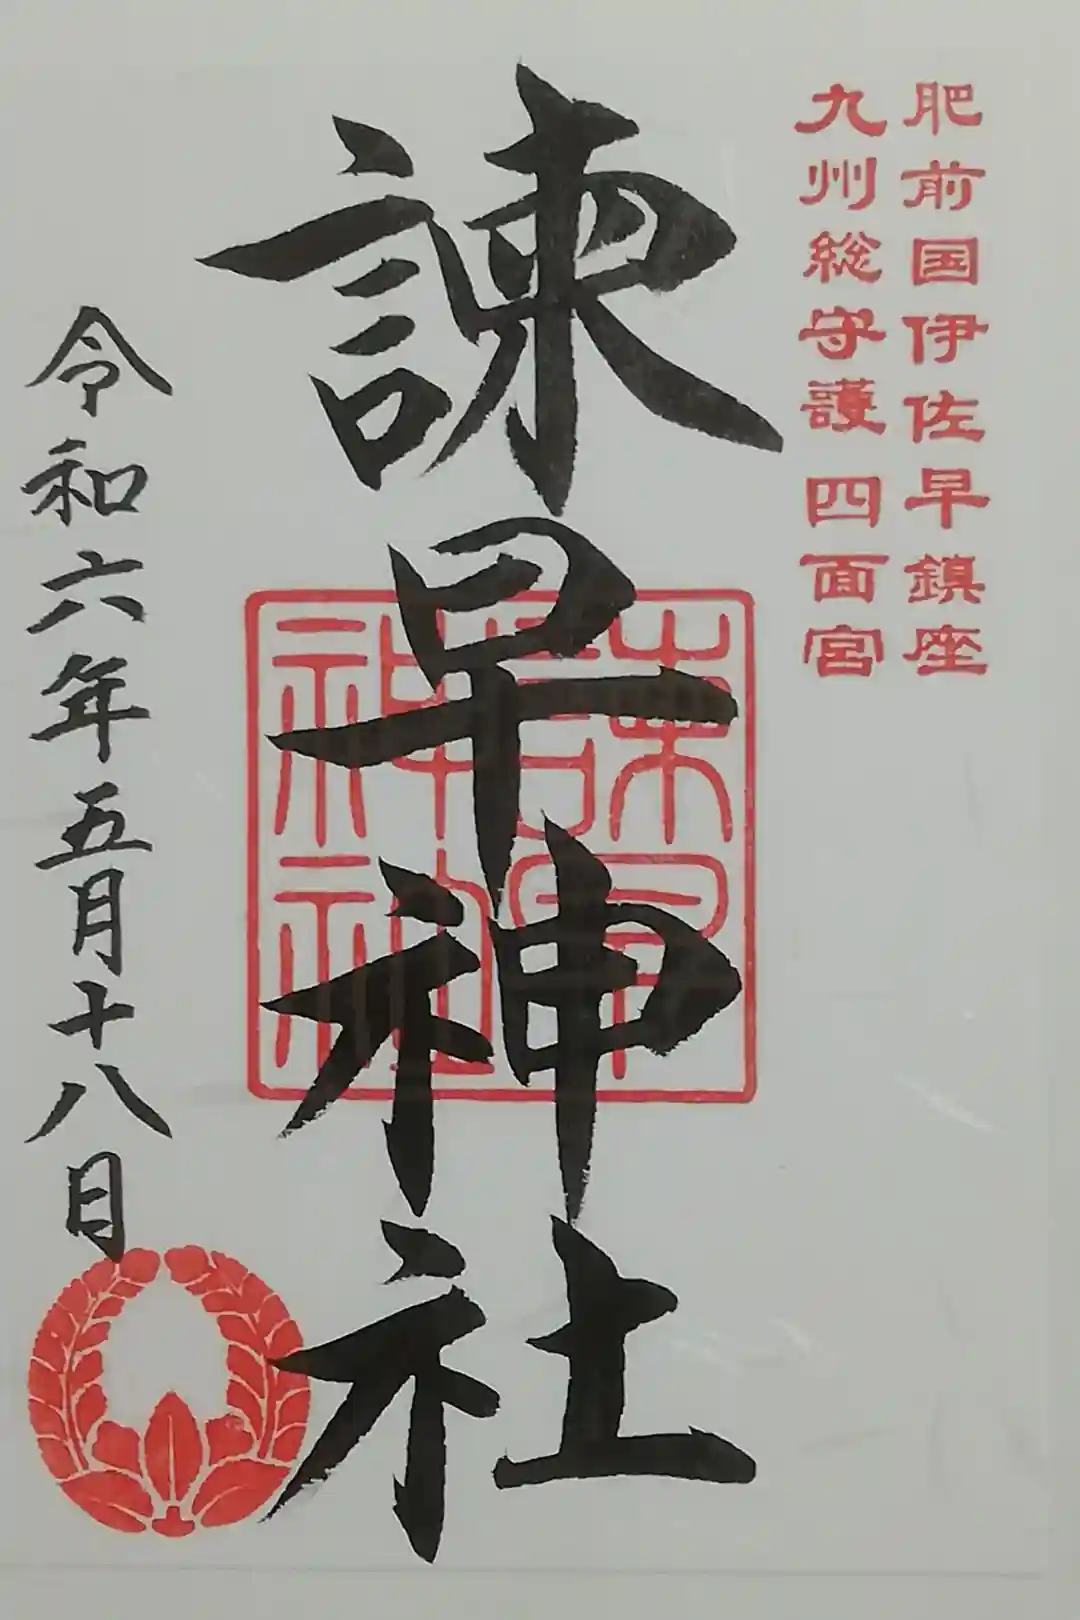 肥前国伊佐早鎮座
九州総守護 四面宮
諫早神社
諫早神社
令和六年五月十八日